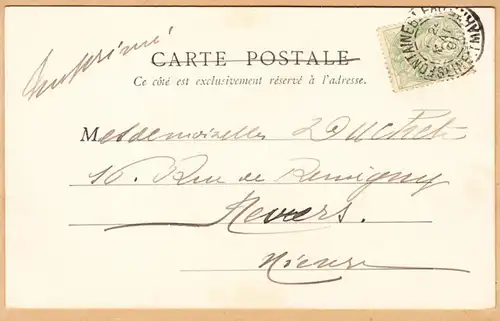 Imprimé
CARTE POSTALE
Ce côté est exclusivement réservé à l'adresse.
Mesdemoiselles Duchet
16. Rue de Remigny
Nevers.
Nièvre
FONTAINEBLEAU
SEINE-ET-MARNE